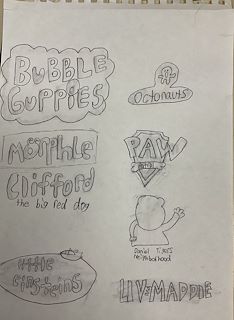 BUBBLE
GUPPIES
Octonauts
Morphle
PAW
Clifford
the big red dog
Daniel
little
Einsteins
LIV & MADDIE